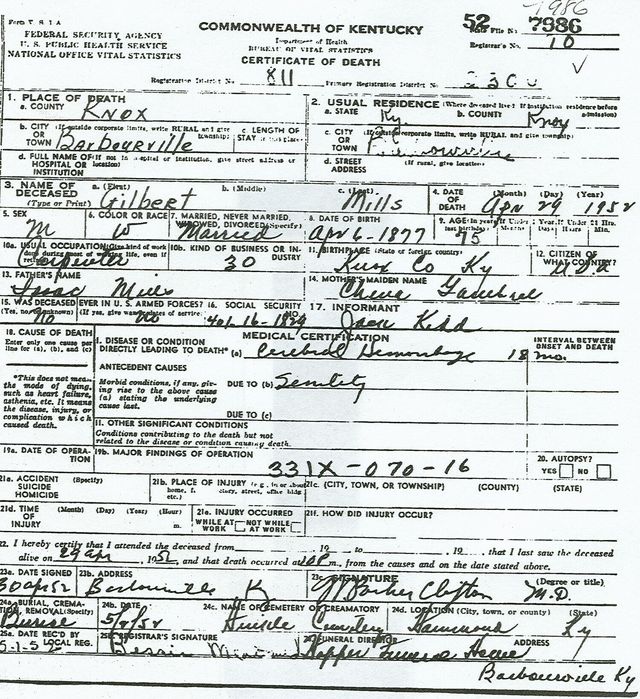 7986
Form V. S. 1 A
COMMONWEALTH OF KENTUCKY
52 File No 7986
FEDERAL SECURITY AGENCY
U. S. PUBLIC HEALTH SERVICE
NATIONAL OFFICE VITAL STATISTICS
Department of Health
BUREAU OF VITAL STATISTICS
CERTIFICATE OF DEATH
Registrar's No. 10
Registration District No. 811 Primary Registration District No. 2300
1. PLACE OF DEATH
a. COUNTY Knox
2. USUAL RESIDENCE (Where deceased lived If institution residence before admission)
a. STATE Ky. b. COUNTY Knox
b. CITY OR TOWN (If outside corporate limits, write RURAL and give township) Barbourville
c. LENGTH OF STAY
c. CITY OR TOWN (If outside corporate limits, write RURAL and give township)
d. FULL NAME OF HOSPITAL OR INSTITUTION (If not in hospital or institution, give street address or location)
d. STREET ADDRESS (If rural, give location)
3. NAME OF DECEASED (Type or Print) a. (First) Gilbert b. (Middle) c. (Last) Mills
4. DATE OF DEATH (Month) (Day) (Year) Apr 29 1952
5. SEX M
6. COLOR OR RACE W
7. MARRIED, NEVER MARRIED, WIDOWED, DIVORCED (Specify) Married
8. DATE OF BIRTH Apr 6-1877
9. AGE (In years last birthday) 75 If Under 1 Year If Under 24 Hrs.
10a. USUAL OCCUPATION (Give kind of work done during most of working life, even if retired) Carpenter
10b. KIND OF BUSINESS OR INDUSTRY 30
11. BIRTHPLACE (State or foreign country) Knox Co Ky
12. CITIZEN OF WHAT COUNTRY? USA
13. FATHER'S NAME Isaac Mills
14. MOTHER'S MAIDEN NAME
15. WAS DECEASED EVER IN U. S. ARMED FORCES? (Yes, no, unknown) (If yes, give war or dates of service) no no
16. SOCIAL SECURITY NO. 401-16-1829
17. INFORMANT Jack Kidd
18. CAUSE OF DEATH
Enter only one cause per line for (a), (b), and (c)
MEDICAL CERTIFICATION
INTERVAL BETWEEN ONSET AND DEATH
I. DISEASE OR CONDITION DIRECTLY LEADING TO DEATH* (a) Cerebral Hemorrhage 18 mo.
*This does not mean the mode of dying, such as heart failure, asthenia, etc. It means the disease, injury, or complication which caused death.
ANTECEDENT CAUSES
Morbid conditions, if any, giving rise to the above cause (a) stating the underlying cause last.
DUE TO (b) Senility
DUE TO (c)
II. OTHER SIGNIFICANT CONDITIONS
Conditions contributing to the death but not related to the disease or condition causing death.
19a. DATE OF OPERATION
19b. MAJOR FINDINGS OF OPERATION
331X-070-16
20. AUTOPSY? YES NO
21a. ACCIDENT SUICIDE HOMICIDE (Specify)
21b. PLACE OF INJURY (e.g., in or about home, farm, factory, street, office bldg etc.)
21c. (CITY, TOWN, OR TOWNSHIP) (COUNTY) (STATE)
21d. TIME OF INJURY (Month) (Day) (Year) (Hour) m.
21e. INJURY OCCURRED WHILE AT WORK NOT WHILE AT WORK
21f. HOW DID INJURY OCCUR?
22. I hereby certify that I attended the deceased from 19 to , 19 , that I last saw the deceased
alive on 29 Apr, 1952, and that death occurred at m., from the causes and on the date stated above.
23a. DATE SIGNED 30 Apr 52
23b. ADDRESS Barbourville Ky
23c. SIGNATURE J Parker Clifton (Degree or title) M.D.
24a. BURIAL, CREMATION, REMOVAL (Specify) Burial
24b. DATE
24c. NAME OF CEMETERY OR CREMATORY Cemetery
24d. LOCATION (City, town, or county) (State) Hammond Ky
25a. DATE REC'D BY LOCAL REG. 5-1-52
25b. REGISTRAR'S SIGNATURE Bessie
26. FUNERAL DIRECTOR Hopper Funeral Home ADDRESS
Barbourville Ky